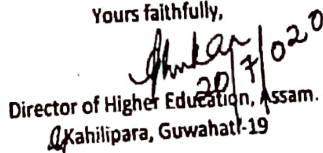 Yours faithfully,
20/7/020
Director of Higher Education, Assam.
Kahilipara, Guwahati-19